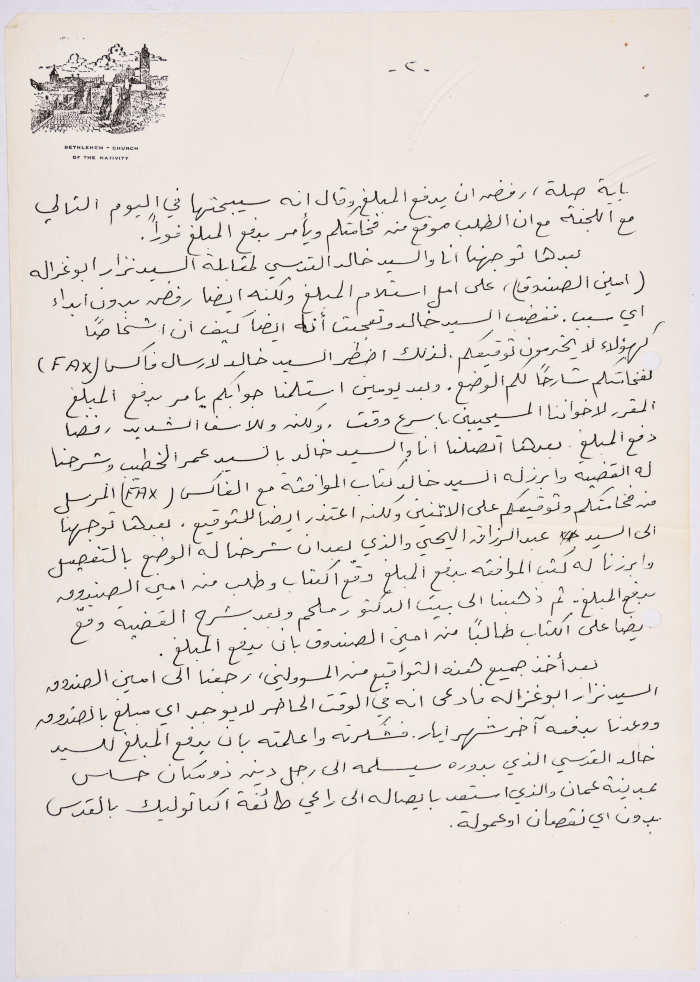 - ٢ -
BETHLEHEM - CHURCH
OF THE NATIVITY
باية صلة، رفض ان يدفع المبلغ وقال انه سيبحثها في اليوم التالي
مع اللجنة مع ان الطلب موقع من فخامتكم ويأمر بدفع المبلغ فوراً.
بعدها توجهنا انا والسيد خالد القدسي لمقابلة السيد نزار ابو غزاله
(امين الصندوق)، على امل استلام المبلغ ولكنه ايضا رفض بدون ابداء
اي سبب. فغضب السيد خالد وتعجبت أنا ايضاً كيف ان اشخاصًا
كهؤلاء لا يحترمون توقيعكم. لذلك اضطر السيد خالد لارسال فاكس (FAX)
لفخامتكم شارحًا لكم الوضع. وبعد يومين استلمنا جوابكم يامر بدفع المبلغ
المقرر لاخواننا المسيحيين باسرع وقت. ولكن وللاسف الشديد رفضا
دفع المبلغ. بعدها اتصلنا انا والسيد خالد بالسيد عمر الخطيب وشرحنا
له القضية وابرز له السيد خالد كتاب الموافقة مع الفاكس (FAX) المرسل
من فخامتكم وتوقيعكم على الاثنين ولكنه اعتذر ايضا للتوقيع. بعدها توجهنا
الى السيد عبد الرزاق اليحيى والذي بعد ان شرحنا له الوضع بالتفصيل
وابرزنا له كتب الموافقه بدفع المبلغ وقّع الكتاب وطلب من امين الصندوق
بدفع المبلغ. ثم ذهبنا الى بيت الدكتور ملحم وبعد شرح القضية وقّع
ايضا على الكتاب طالبًا من امين الصندوق بان يدفع المبلغ.
بعد أخذ جميع هذه التواقيع من المسؤولين، رجعنا الى امين الصندوق
السيد نزار ابو غزاله فادعى انه في الوقت الحاضر لا يوجد اي مبلغ بالصندوق
ووعدنا بدفعه آخر شهر ايار. فشكرته واعلمته بان يدفع المبلغ للسيد
خالد القدسي الذي بدوره سيسلمه الى رجل دين ذو مكان حساس
بمدينة عمان والذي استعد بايصاله الى راعي طائفة الكاثوليك بالقدس
بدون اي نقصان او عمولة.